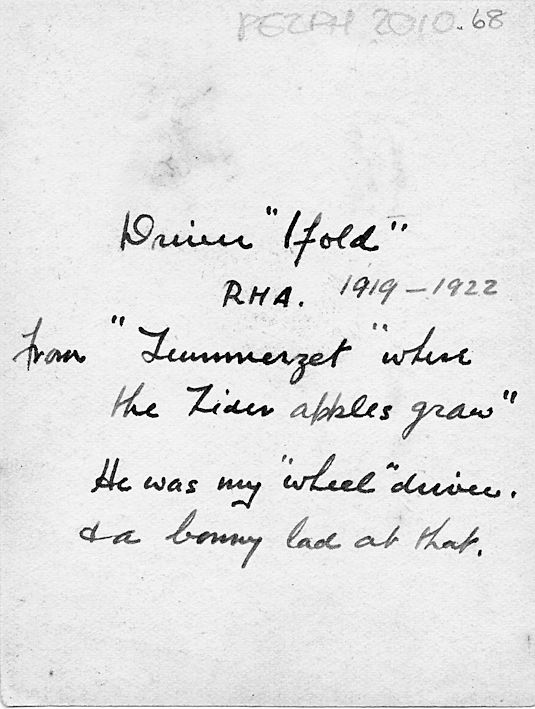 PEZPH 2010.68
Driver "Ifold"
RHA. 1919 – 1922
from "Zummerzet "where
the Zider apples graw"
He was my "wheel" driver.
& a bonny lad at that.